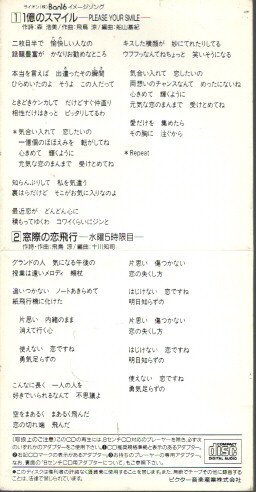 ライオン(株)Ban16イメージソング
1 1億のスマイル—PLEASE YOUR SMILE—
作詩:森 浩美/作曲:飛鳥 涼/編曲:船山基紀
二枚目半で 愉快しい人なの
話題豊富が かなりお勧めなところ
本当を言えば 出逢ったその瞬間
ひらめいたのよ そうよ この人だって
ときどきケンカして だけどすぐ仲直り
相性だけはきっと ピッタリしてるわ
*気合い入れて 恋したい
一億個のほほえみを 転がしてね
心きめて 輝くように
元気な恋のまんまで 受けとめてね
知らんぷりして 私を気遣う
裏はらだけど そこがお気に入りなのよ
最近恋が どんどん心に
積もってゆくわ コワイくらいにジンと
キスした横顔が 妙にてれたりしてる
ウフフっなんてねちょっと 笑いそうになる
気合い入れて 恋したい
両想いのチャンスなんて めったにないわ
心きめて 輝くように
元気な恋のまんまで 受けとめてね
愛だけを 集めたら
その胸に 注ぐから
*Repeat
2 窓際の恋飛行—水曜5時限目—
作詩・作曲:飛鳥 涼/編曲:十川知司
グランドの人 気になる午後の
授業は遠いメロディ 頬杖
追いつかない ノートあきらめて
紙飛行機に化けた
片思い 内緒のまま
消えて行く心
使えない 恋ですね
勇気足らずの
こんなに長く 一人の人を
好きでいられるなんて 不思議よ
空をまあるく まあるく飛んだ
恋の切れ端 飛んだ
片思い 傷つかない
恋の失くし方
はじけない 恋ですね
明日知らずの
片思い 傷つかない
恋の失くし方
はじけない 恋ですね
明日知らずの
使えない 恋ですね
勇気足らずの
COMPACT disc
DIGITAL AUDIO
ビクター音楽産業株式会社